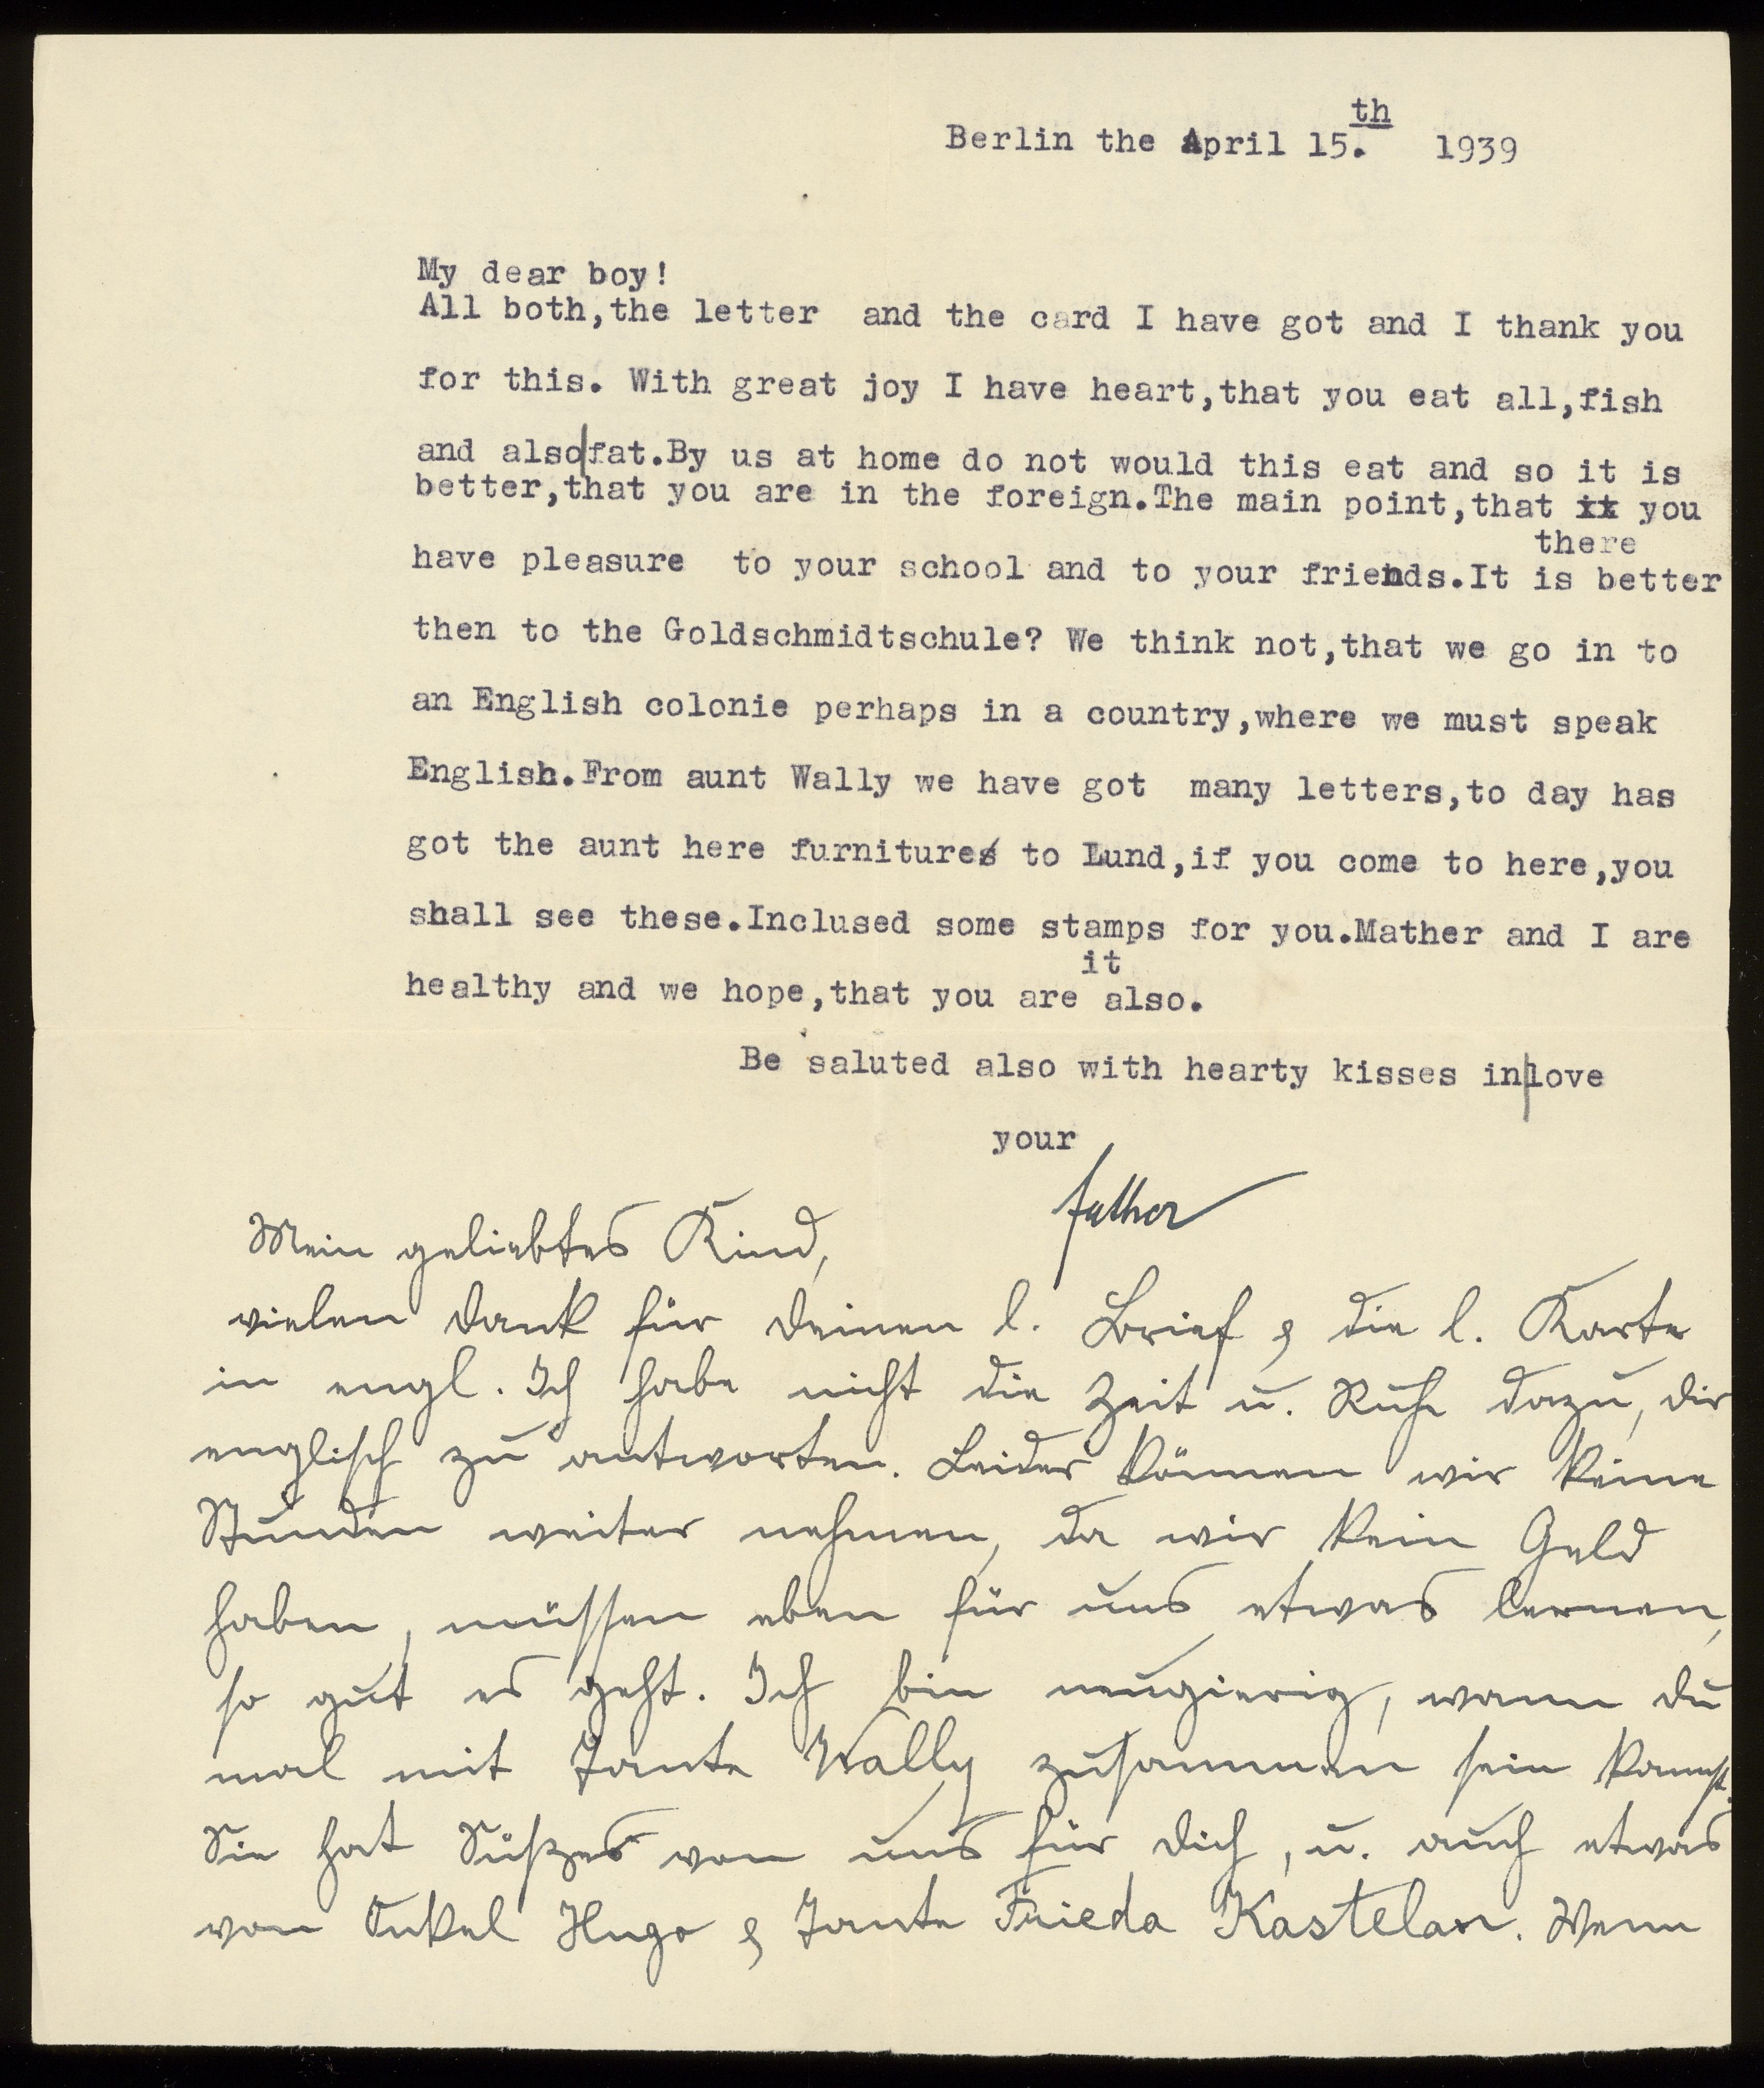 Berlin the April 15.th 1939
My dear boy!
All both,the letter and the card I have got and I thank you
for this. With great joy I have heart,that you eat all,fish
and also|fat.By us at home do not would this eat and so it is
better,that you are in the foreign.The main point,that xx you
there
have pleasure to your school and to your friends.It is better
then to the Goldschmidtschule? We think not,that we go in to
an English colonie perhaps in a country,where we must speak
English.From aunt Wally we have got many letters,to day has
got the aunt here furnitures to Lund,if you come to here,you
shall see these.Inclused some stamps for you.Mather and I are
it
healthy and we hope,that you are also.
Be saluted also with hearty kisses in|love
your
father
Mein geliebtes Kind,
vielen Dank für Deinen l. Brief & die l. Karte
in engl. Ich habe nicht die Zeit u. Ruhe dazu, dir
englisch zu antworten. Leider können wir keine
Stunden weiter nehmen, da wir kein Geld
haben, müssen eben für uns etwas lernen,
so gut es geht. Ich bin neugierig, wann du
mal mit Tante Wally zusammen sein kannst.
Sie hat Süßes von uns für dich, u. auch etwas
von Onkel Hugo & Tante Frieda Kastelan. Wenn